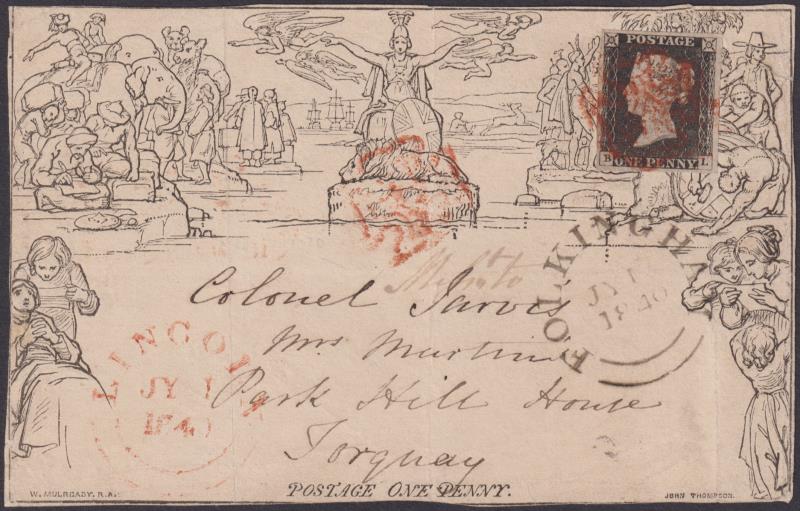 POSTAGE
B ONE PENNY L
FOLKINGHA
JY 1
1840
Colonel Jarvis
Mrs Martin's
Park Hill House
Torquay
LINCOL
JY 1
1840
POSTAGE ONE PENNY.
W. MULREADY, R.A.
JOHN THOMPSON.